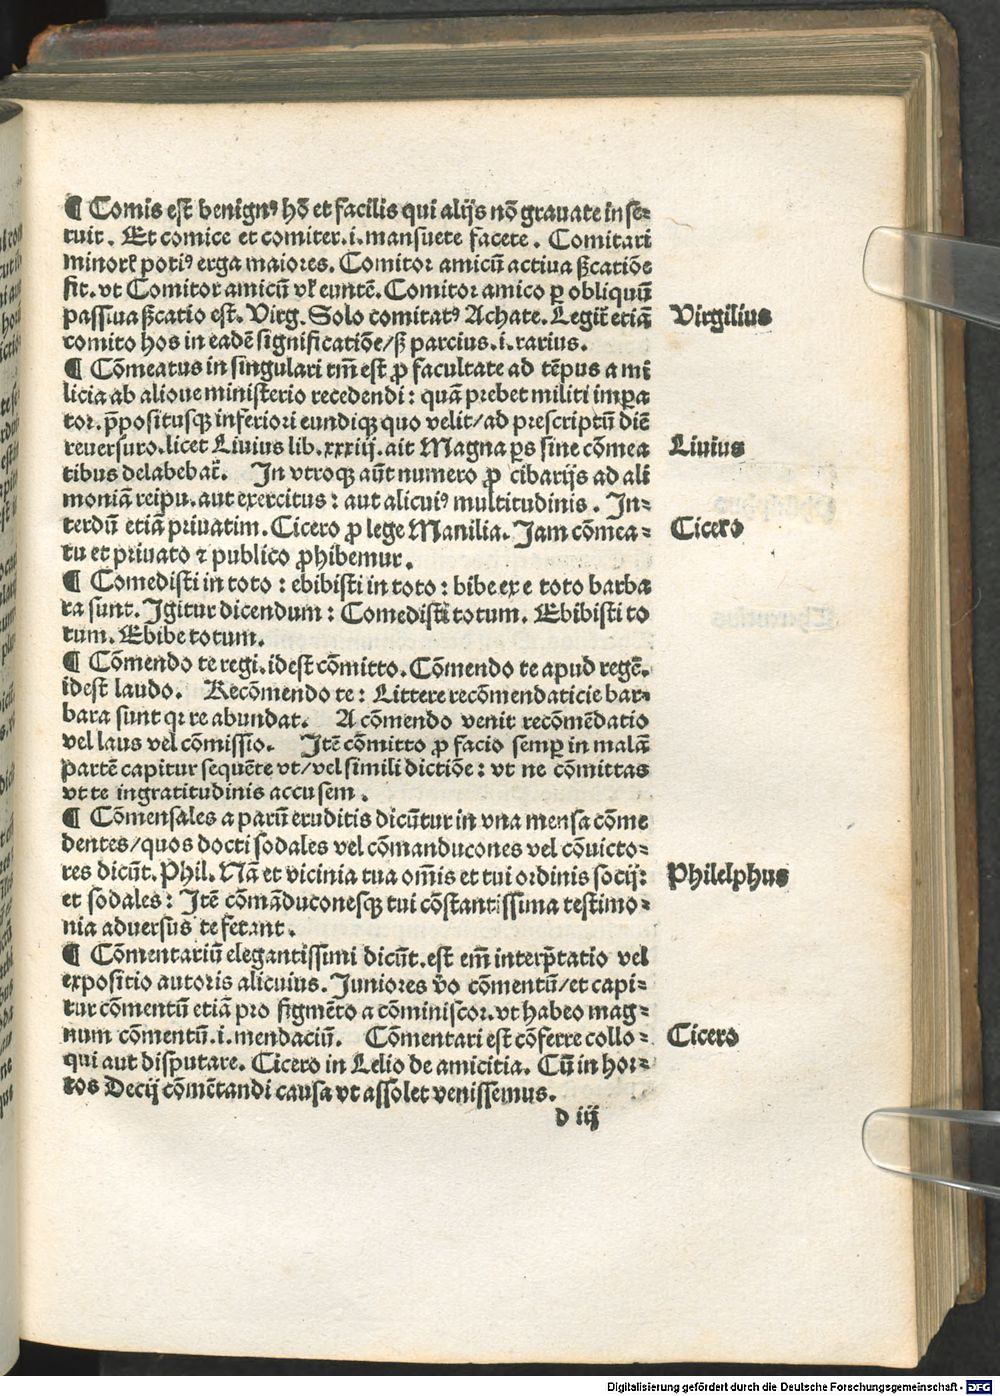 ¶ Comis est benignꝰ hō et facilis qui alijs nō grauate inser
uit. Et comice et comiter.i.mansuete facete. Comitari
minorꝭ potiꝰ erga maiores. Comitor amicū actiua ßcatiōe
fit. vt Comitor amicū vľ euntē. Comitor amico ꝑ obliquū
passiua ßcatio est. Virg. Solo comitatꝰ Achate. Legit̄ etiā
Virgilius
comito hos in eadē significatiōe/ß parcius.i.rarius.
¶ Cōmeatus in singulari tm̄ est ꝓ facultate ad tēpus a mi
licia ab alioue ministerio recedendi: quā prebet militi impa
tor. p̄positusqꝫ inferiori eundiqꝫ quo velit/ad prescriptū diē
reuersuro.licet Liuius lib.xxxiij.ait Magna ps̄ sine cōmea
Liuius
tibus delabebat̄. In vtroqꝫ aūt numero ꝓ cibarijs ad ali
moniā reipu.aut exercitus: aut alicuiꝰ multitudinis. In-
terdū etiā priuatim. Cicero ꝓ lege Manilia. Jam cōmea-
Cicero
tu et priuato ⁊ publico ꝓhibemur.
¶ Comedisti in toto: ebibisti in toto: bibe ex e toto barba
ra sunt. Igitur dicendum: Comedisti totum. Ebibisti to
tum. Ebibe totum.
¶ Cōmendo te regi.idest cōmitto. Cōmendo te apud regē.
idest laudo. Recōmendo te: Littere recōmendaticie bar-
bara sunt qꝛ re abundat. A cōmendo venit recōmēdatio
vel laus vel cōmissio. Itē cōmitto ꝓ facio semꝑ in malā
ꝑtē capitur sequēte vt/vel simili dictiōe: vt ne cōmittas
vt te ingratitudinis accusem.
¶ Cōmensales a parū eruditis dicūtur in vna mensa cōme
dentes/quos docti sodales vel cōmanducones vel cōuicto-
res dicūt. Phil. Nā et vicinia tua om̄is et tui ordinis socij:
Philelphus
et sodales: Itē cōmāduconesqꝫ tui cōstantissima testimo-
nia aduersus te ferant.
¶ Cōmentariū elegantissimi dicūt.est em̄ interp̄tatio vel
expositio autoris alicuius. Juniores v̄o cōmentū/et capi-
tur cōmentū etiā pro figmēto a cōminiscor.vt habeo mag-
num cōmentū.i.mendaciū. Cōmentari est cōferre collo-
Cicero
qui aut disputare. Cicero in Lelio de amicitia. Cū in hor-
tos Decij cōmētandi causa vt assolet venissemus.
d iij
Digitalisierung gefördert durch die Deutsche Forschungsgemeinschaft - DFG